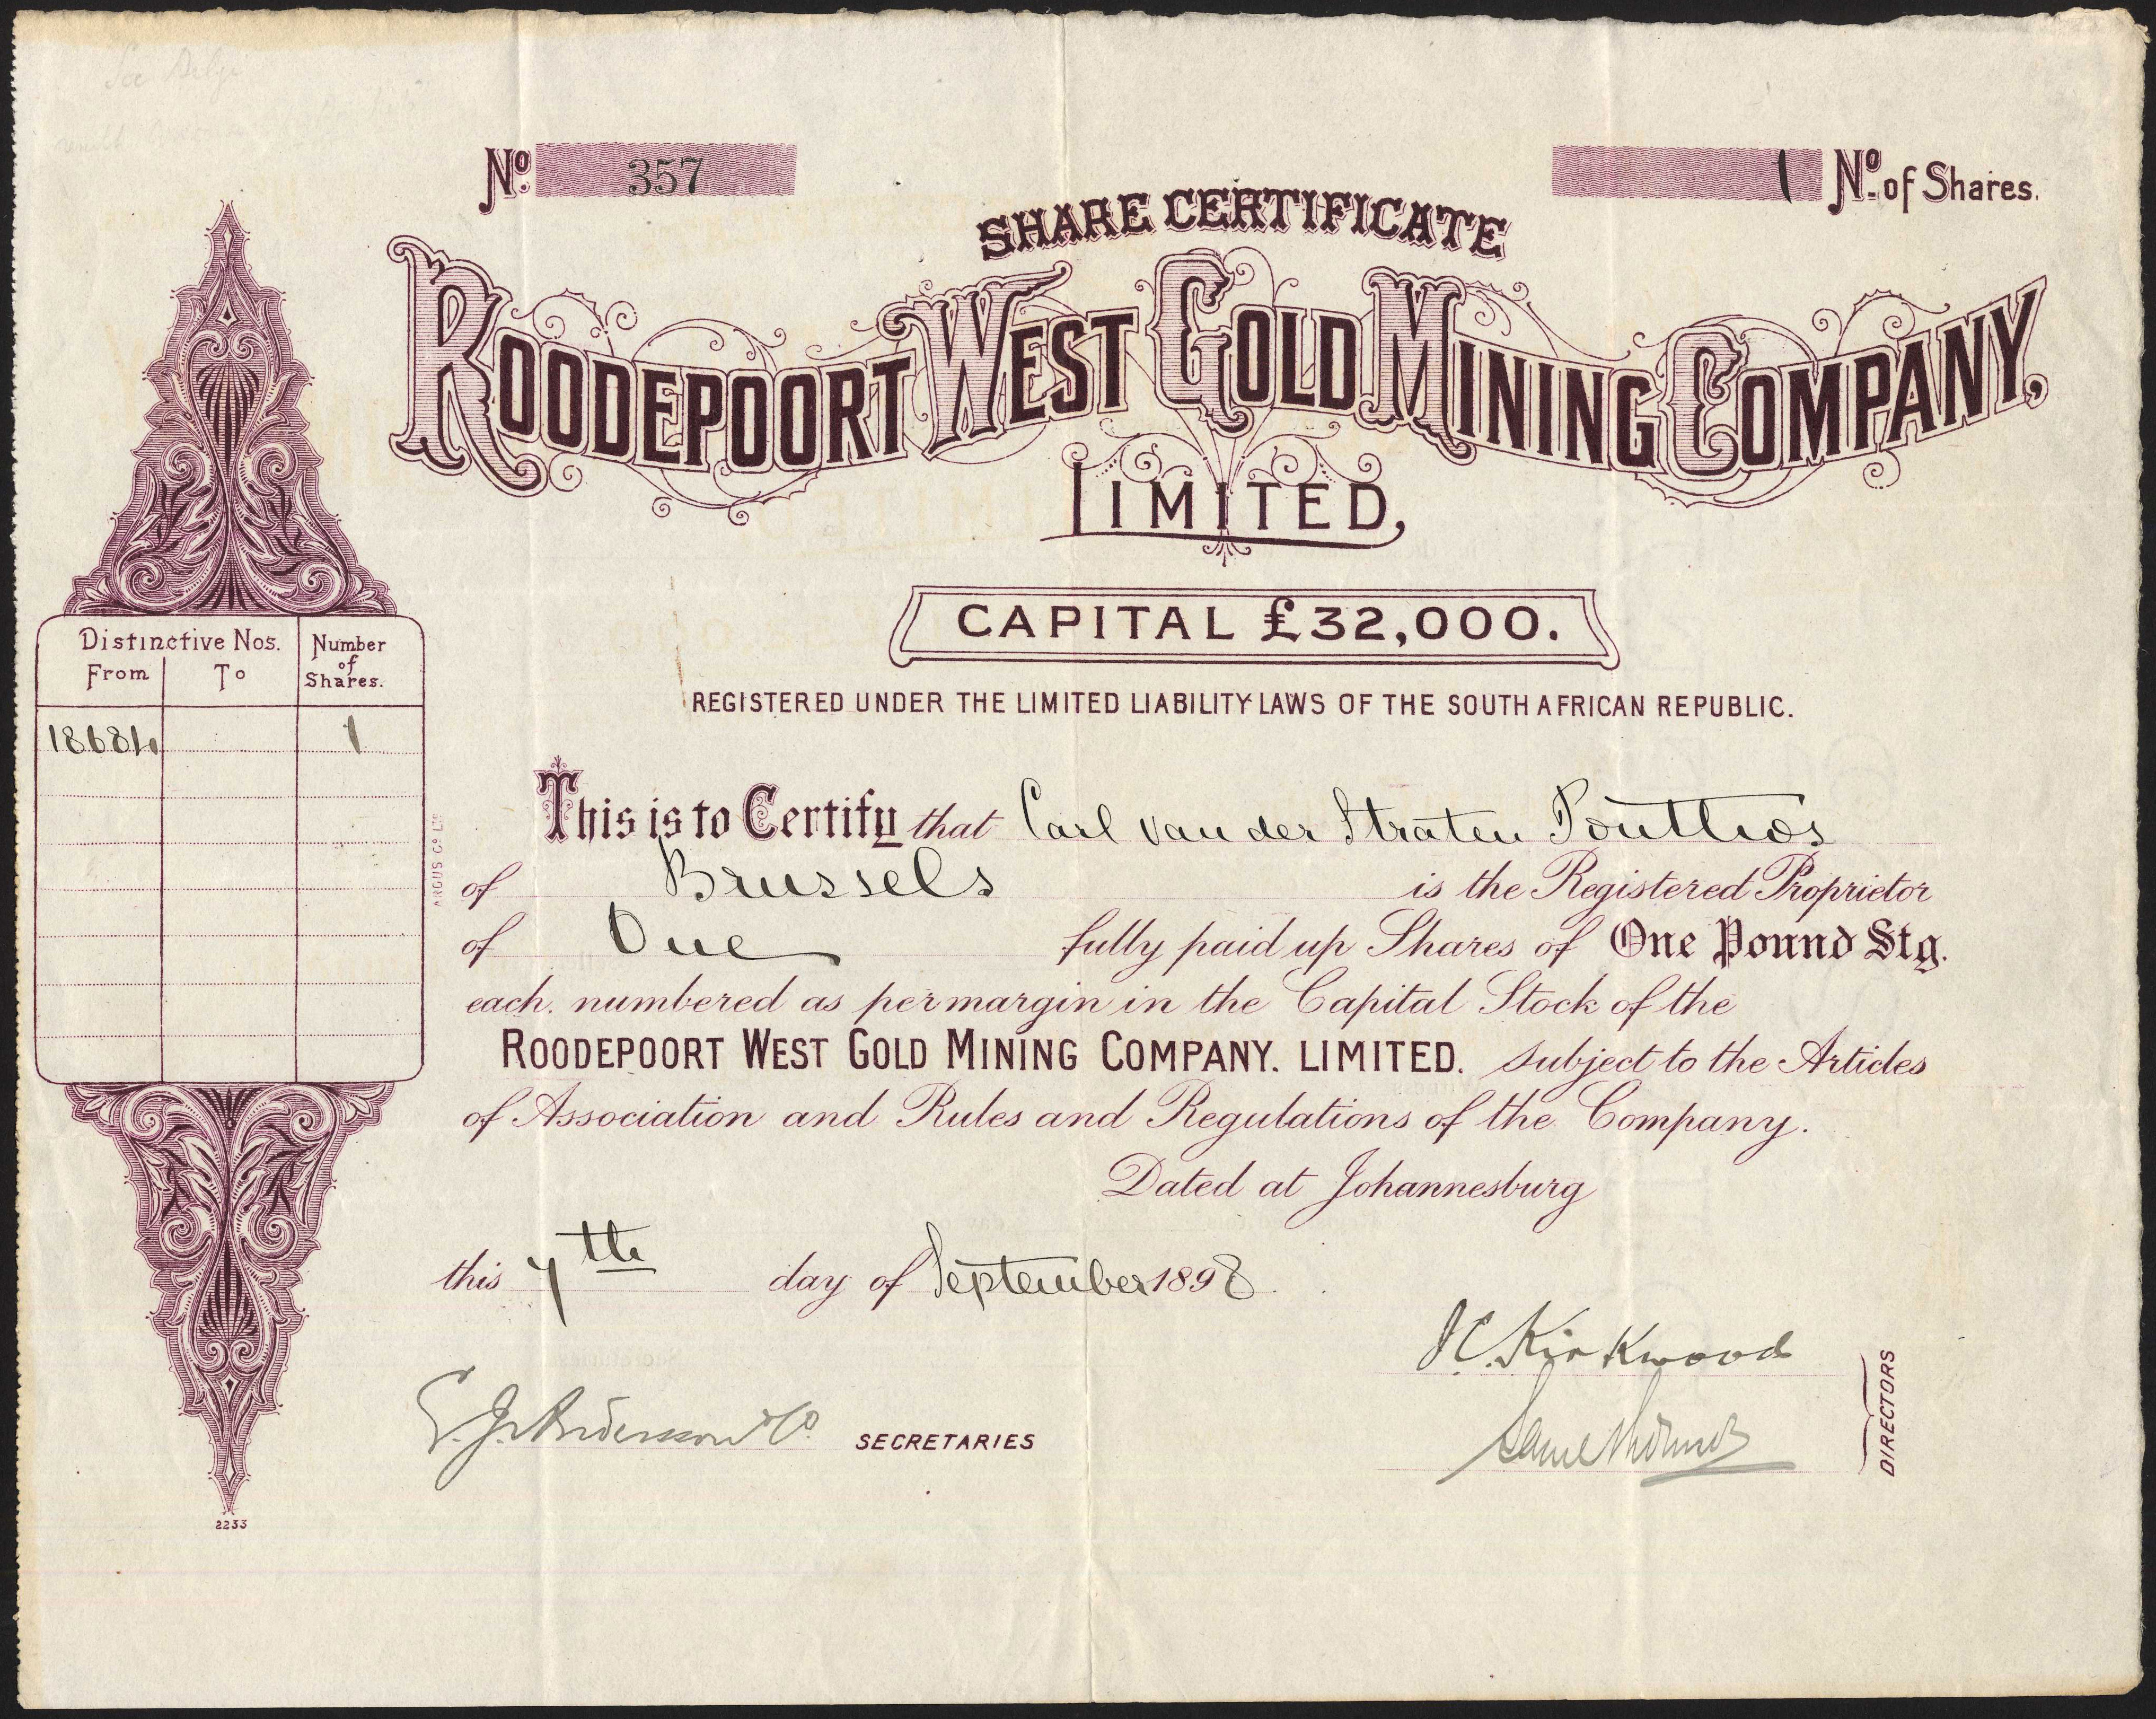 No. 357
1 No. of Shares.
SHARE CERTIFICATE
ROODEPOORT WEST GOLD MINING COMPANY,
LIMITED,
CAPITAL £32,000.
REGISTERED UNDER THE LIMITED LIABILITY LAWS OF THE SOUTH AFRICAN REPUBLIC.
Distinctive Nos. Number of Shares.
From To
18684 1
ARGUS Co. LTD.
This is to Certify that Carl van der Straten Ponthos
of Brussels is the Registered Proprietor
of One fully paid up Shares of One Pound Stg.
each. numbered as per margin in the Capital Stock of the
ROODEPOORT WEST GOLD MINING COMPANY. LIMITED. subject to the Articles
of Association and Rules and Regulations of the Company.
Dated at Johannesburg
this 7th day of September 1898.
Kirkwood
SECRETARIES
DIRECTORS
2233